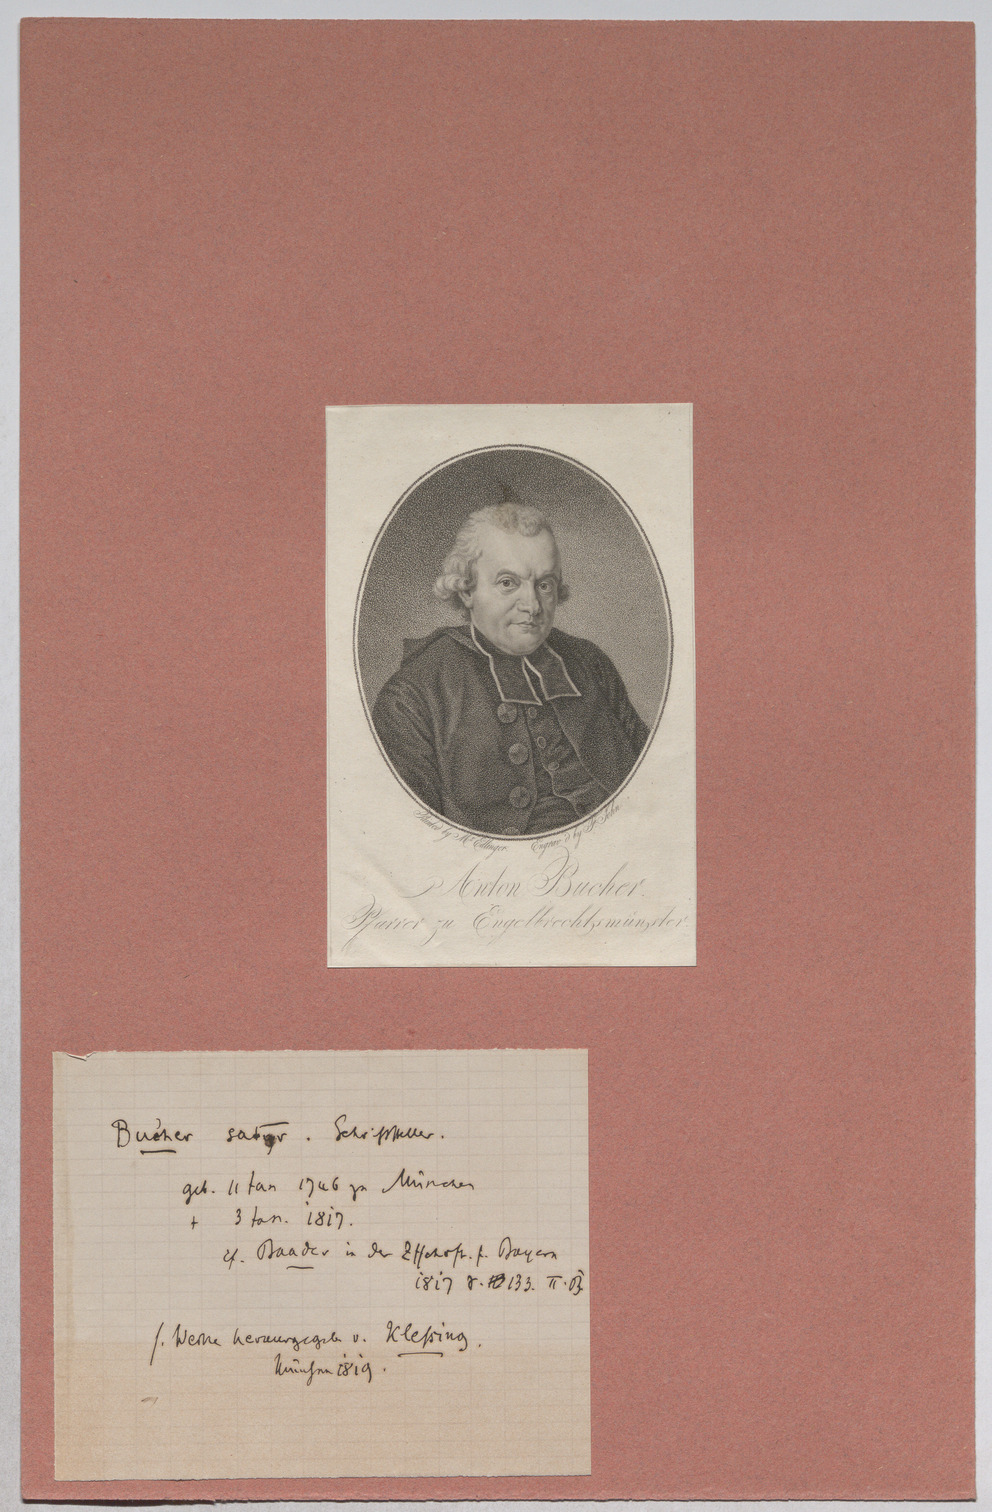 Painted by Mr. Ettinger. Engrav'd by F. John
Anton Bucher.
Pfarrer zu Engelbrechtsmünster.
Bucher satyr. Schriftsteller.
geb. 11 Jan 1746 zu München
+ 3 Jan. 1817.
cf. Baader in der Ztschrft. f. Bayern
1817 8. 133. II. B.
s. Werke herausgegeb v. Klessing.
München 1819.